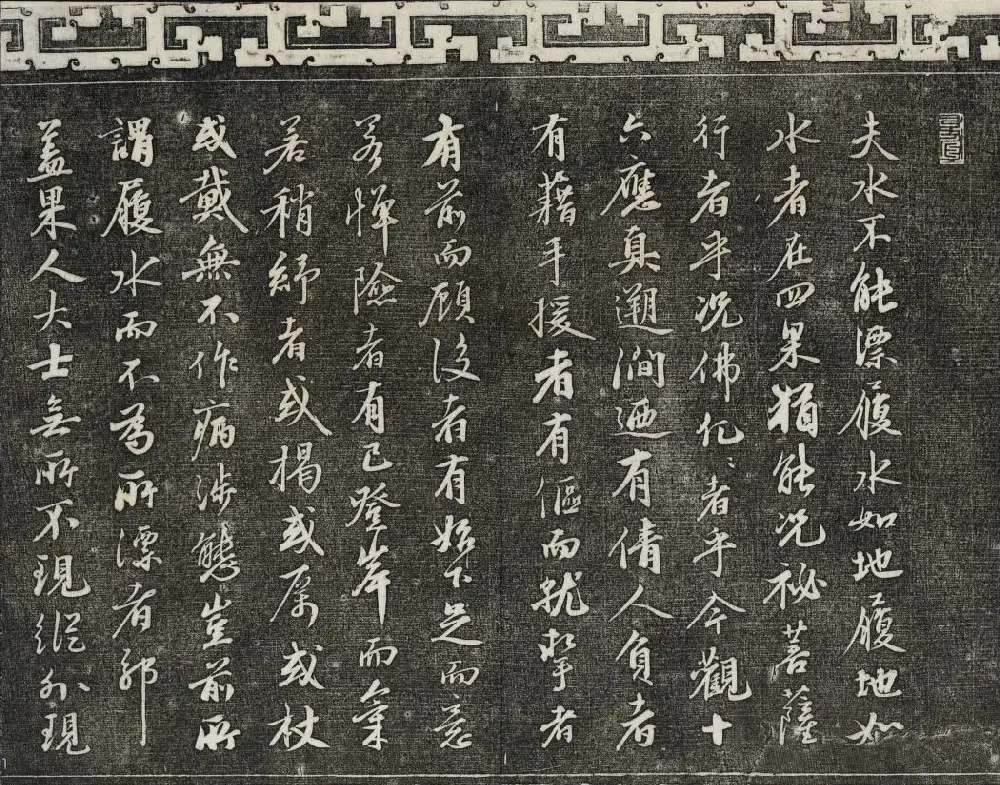 夫水不能漂履水如地履地如
水者在四果猶能況祕菩薩
行者乎況佛化〻者乎今觀十
六應真遡澗迺有倩人負者
有藉手援者有傴而就者
有前而顧後者有始下足而意
若憚險者有已登岸而氣
若稍紓者或揭或厲或杖
或戴無不作病涉態豈前所
謂履水而不為所漂者耶
蓋果人大士無所不現縱外現